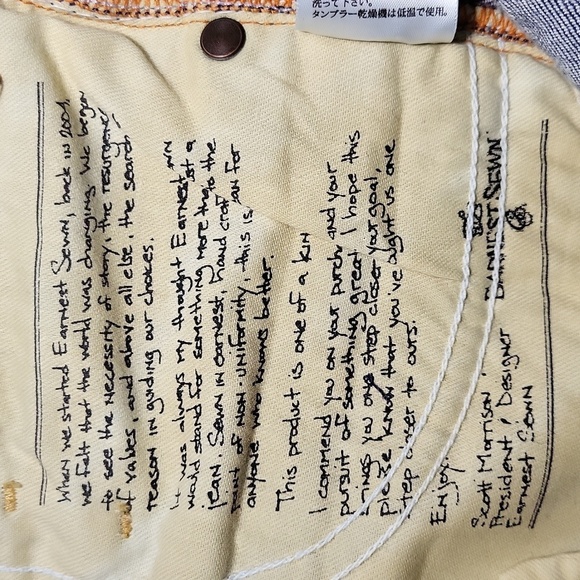 洗って下さい。
タンブラー乾燥機は低温で使用。
When we started Earnest Sewn, back in 2004,
we felt that the world was changing. We began
to see the necessity of story, the resurgence
of values, and above all else, the search
reason in guiding our choices.
It was always my thought Earnest
would stand for something more than just a
jean. Sewn in earnest, hand craf to the
point of non-uniformity - this is an for
anyone who knows better.
This product is one of a kin
I commend you on your purch and your
pursuit of something great. I hope this
brings you one step closer your goal,
please know that you've ought us one
step closer to ours.
Enjoy
Scott Morrison
President / Designer
Earnest Sewn
EARNEST SEWN